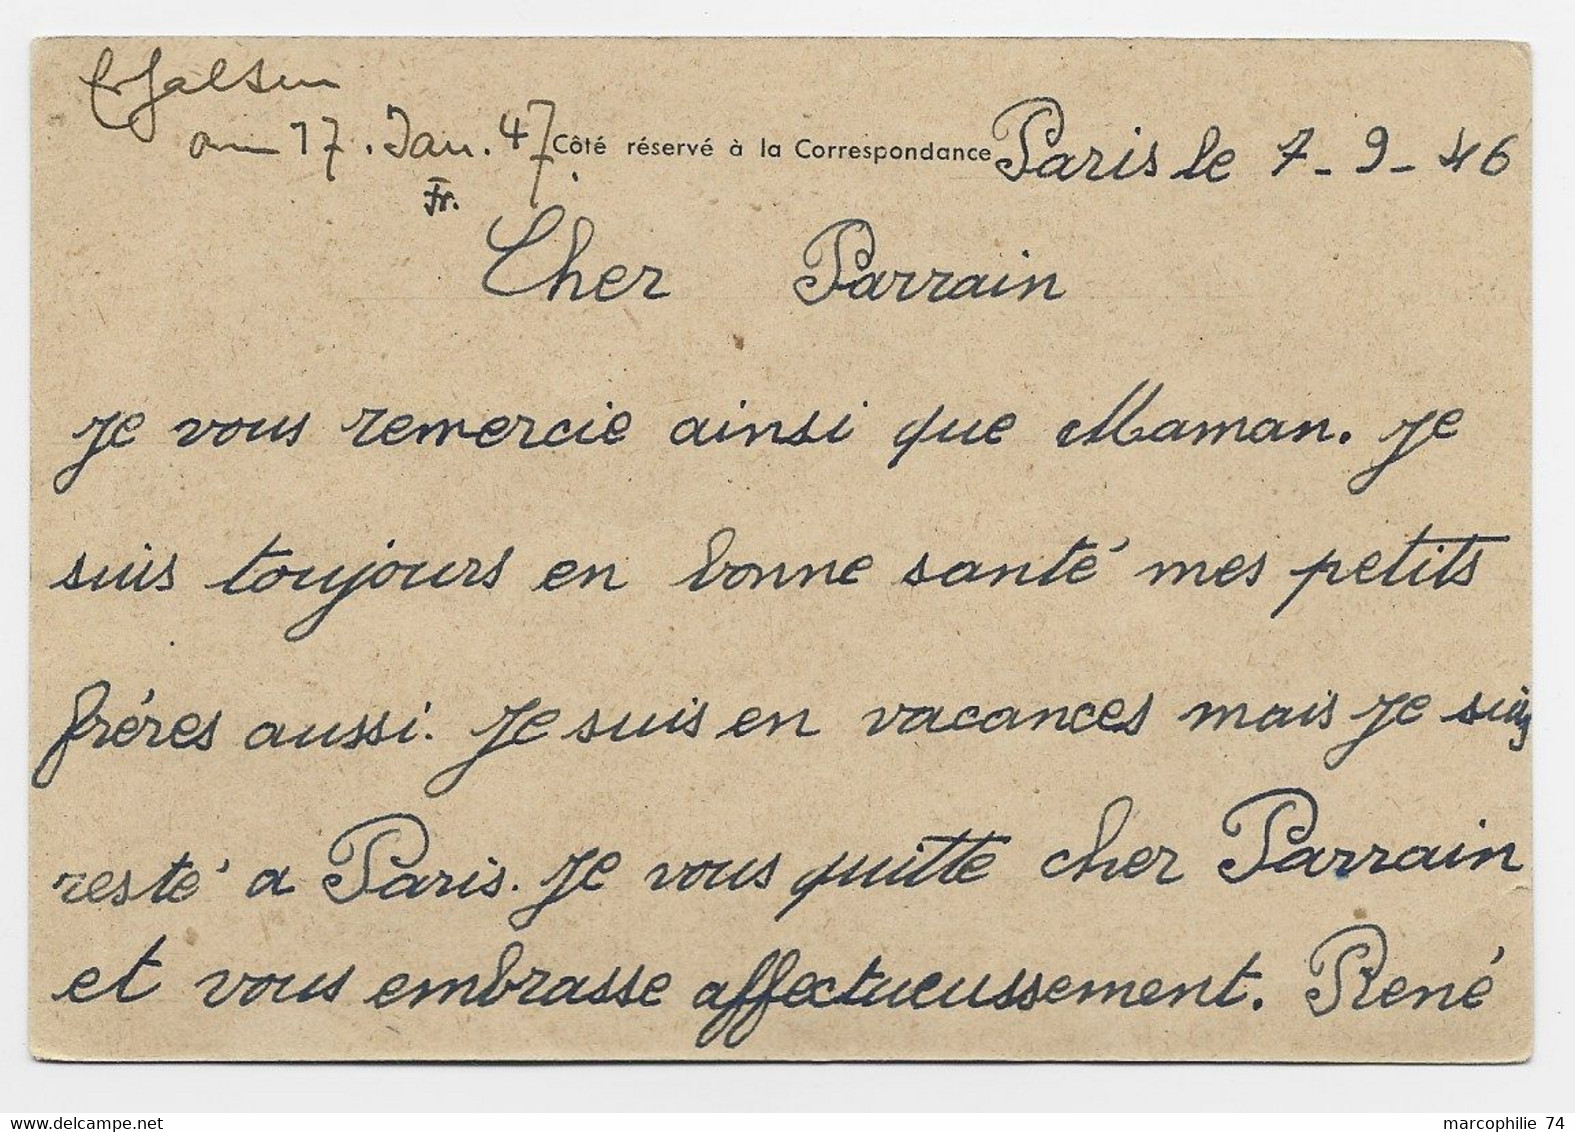 Erhalten
am 17. Jan. 47
Fr.
Côté réservé à la Correspondance
Paris le 7-9-46
Cher Parrain
Je vous remercie ainsi que Maman. Je
suis toujours en bonne santé mes petits
fréres aussi. Je suis en vacances mais je suis
resté a Paris. Je vous quitte cher Parrain
et vous embrasse affectueussement. René
marcophilie 74